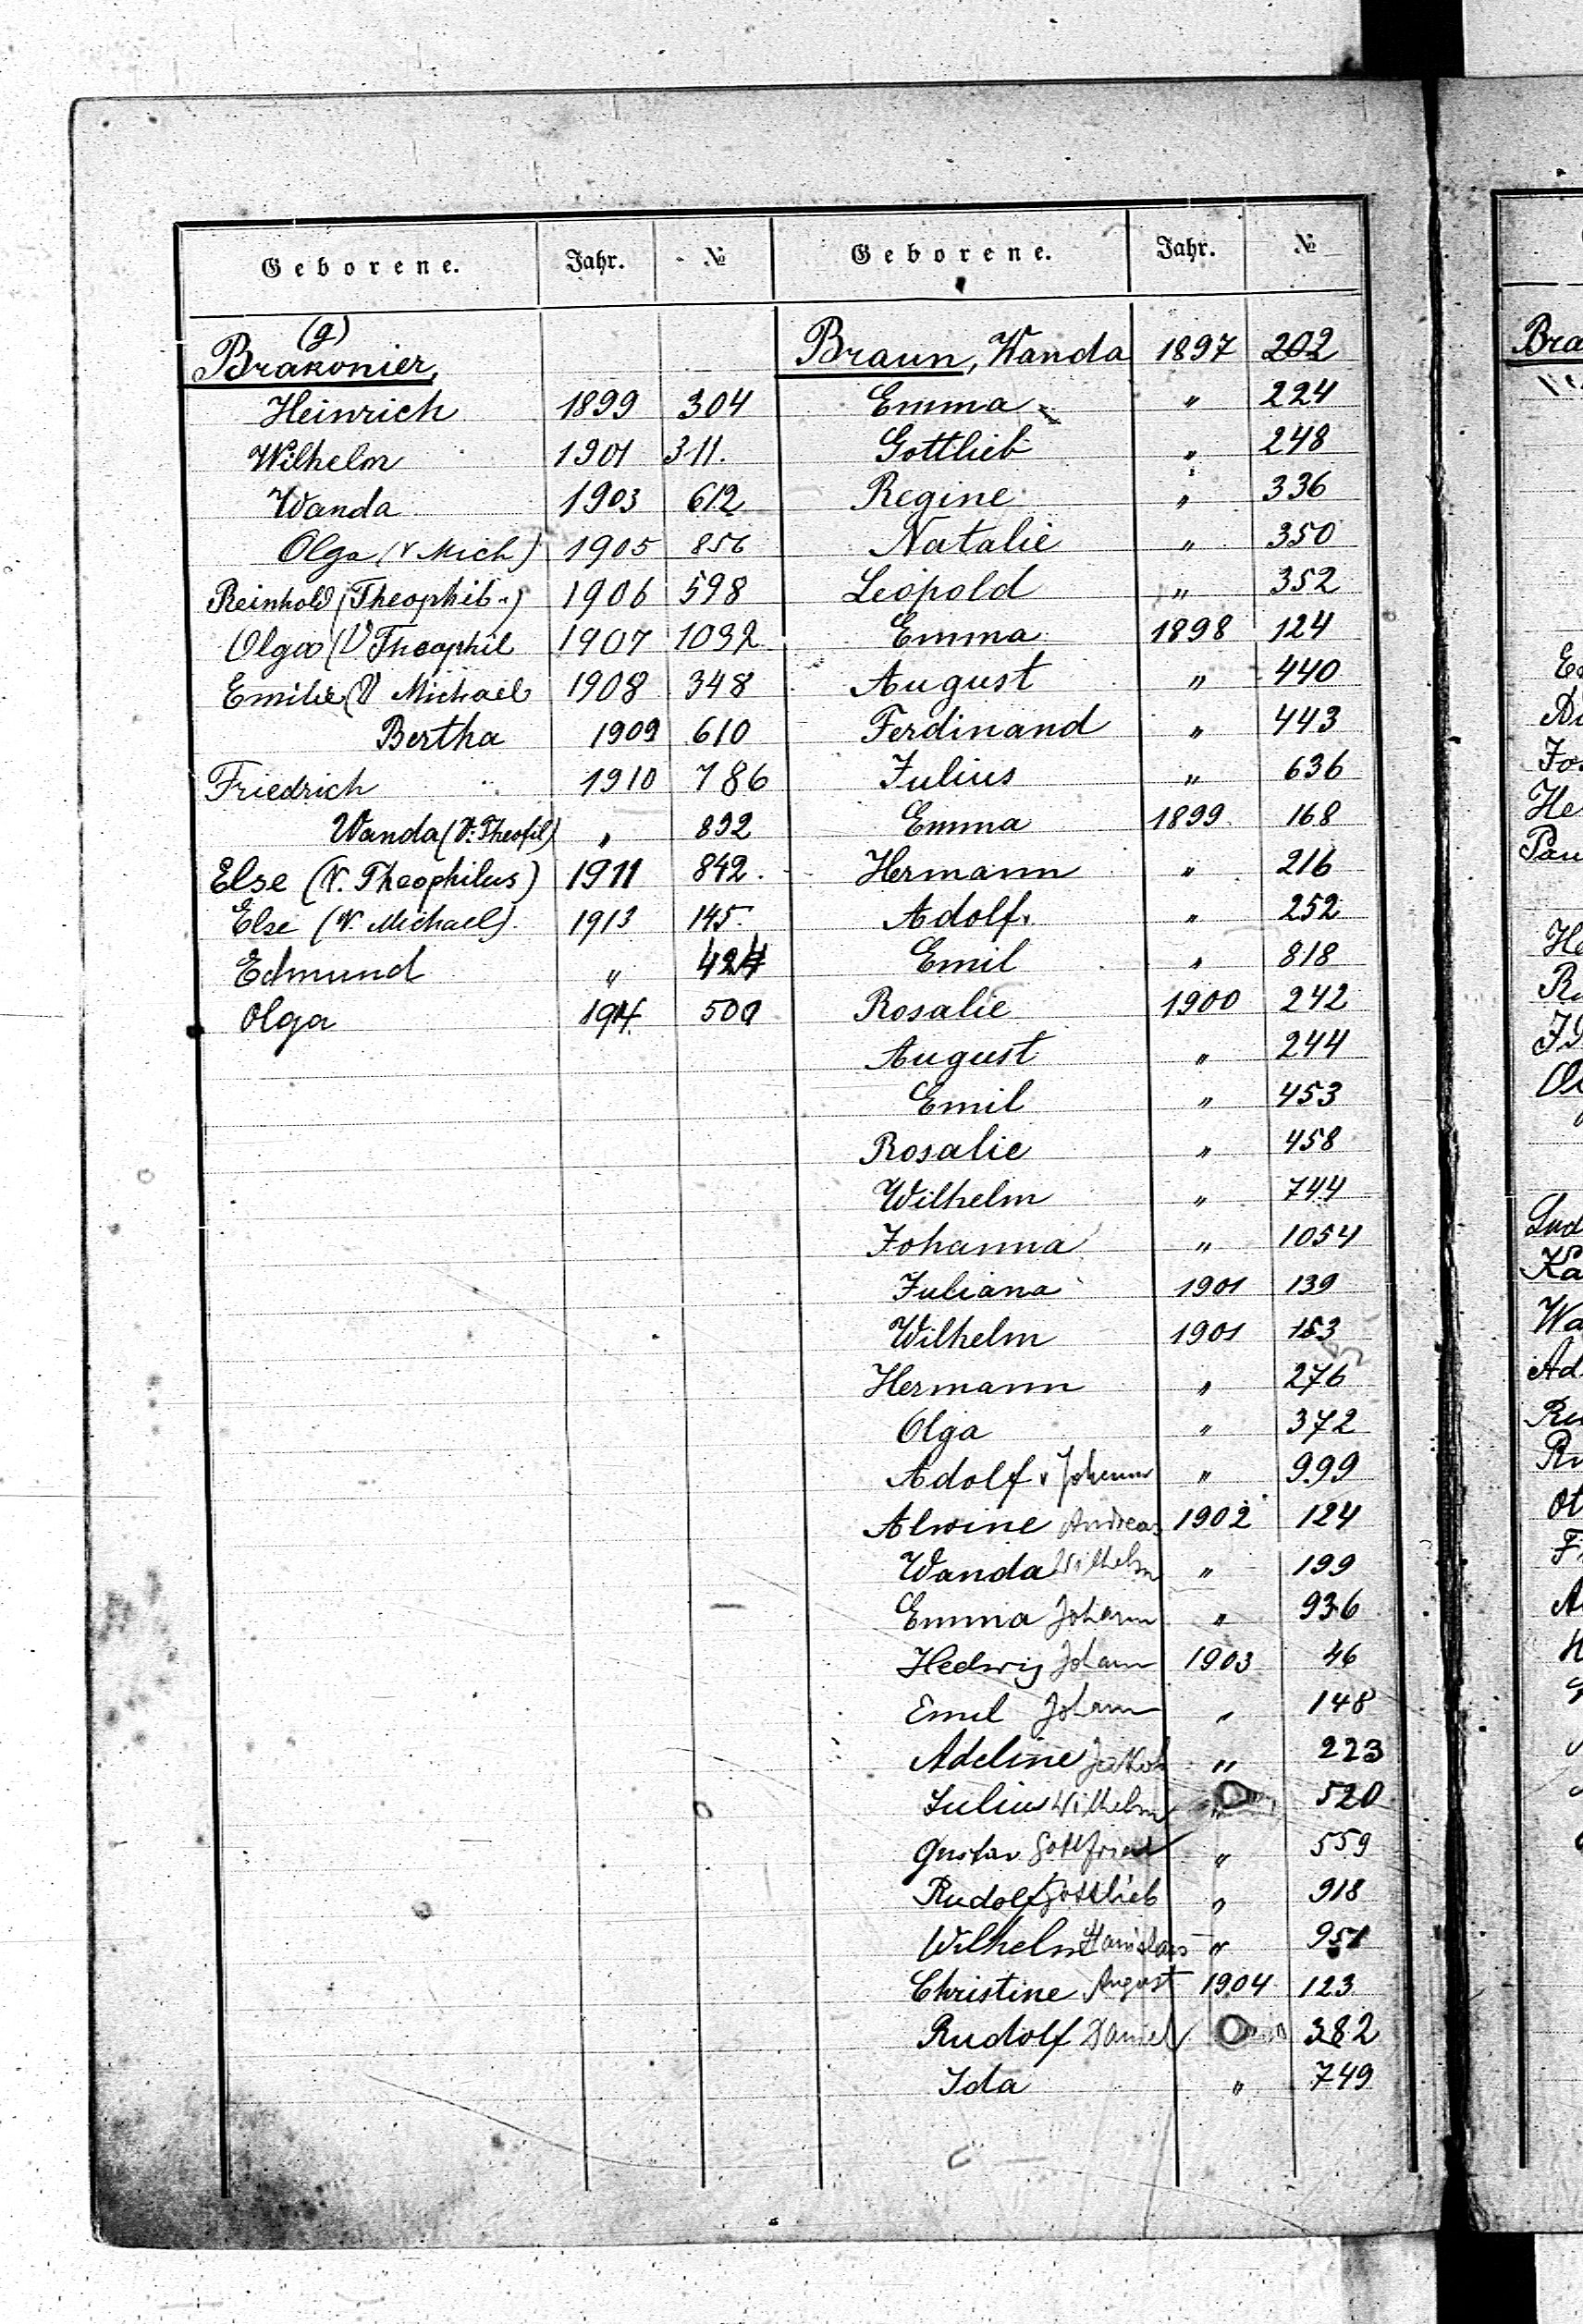 Geborene. Jahr. №
(g)
Brakonier,
Heinrich 1899 304
Wilhelm 1901 311.
Wanda 1903 612
Olga (v Mich) 1905 856
Reinhold (Theophil.) 1906 598
Olga (V Theophil 1907 1032
Emilie (V Michael 1908 348
Bertha 1909 610
Friedrich 1910 786
Wanda (V. Theofil) " 892
Else (V. Theophilus) 1911 842.
Else (V. Michael). 1913 145.
Edmund " 424
Olga 1914 500
Geborene. Jahr. №
Braun, Wanda 1897 202
Emma " 224
Gottlieb " 248
Regine " 336
Natalie " 350
Leopold " 352
Emma 1898 124
August " 440
Ferdinand " 443
Julius " 636
Emma 1899 168
Hermann " 216
Adolf. " 252
Emil " 818
Rosalie 1900 242
August " 244
Emil " 453
Rosalie " 458
Wilhelm " 744
Johanna " 1054
Juliana 1901 139
Wilhelm 1901 153
Hermann " 276
Olga " 372
Adolf v Johann " 999
Alwine Andreas 1902 124
Wanda Wilhelm " 199
Emma Johann " 936
Hedwig Johann 1903 46
Emil Johann " 148
Adeline Jakob " 223
Julius Wilhelm " 520
Gustav Gottfried " 559
Rudolf Gottlieb " 918
Wilhelm " 951
Christine August 1904 123
Rudolf Daniel 382
Ida " 749
Bra